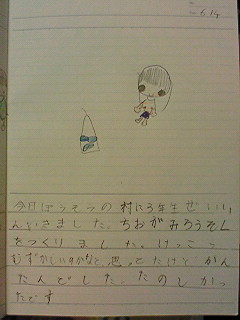 今日ぼうそうの村に3年生ぜいい
んいきました。ちおがみろうそく
をつくりました。けっこう
むずかしいかなと思ってたけどかん
たんでした。たのしかっ
たです